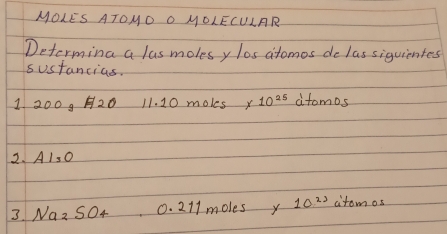 MOLES ATOMO O MOLECULAR
Determina a las moles y los átomos de las siguientes
sustancias.
1. 200 g H20 11.10 moles y 10²⁵ átomos
2. Al3O
3. Na2 SO4 . 0.211 moles y 10.²³ átomos